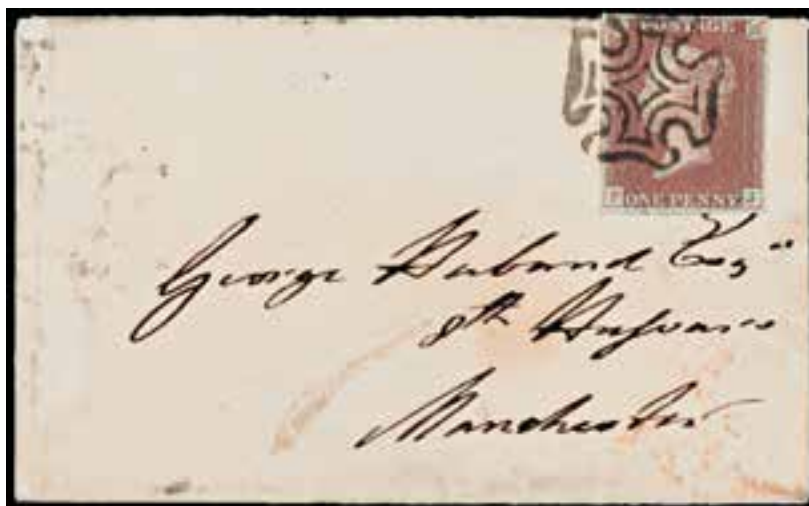 POSTAGE
ONE PENNY J
George Huband Esqr
8th Hussars
Manchester